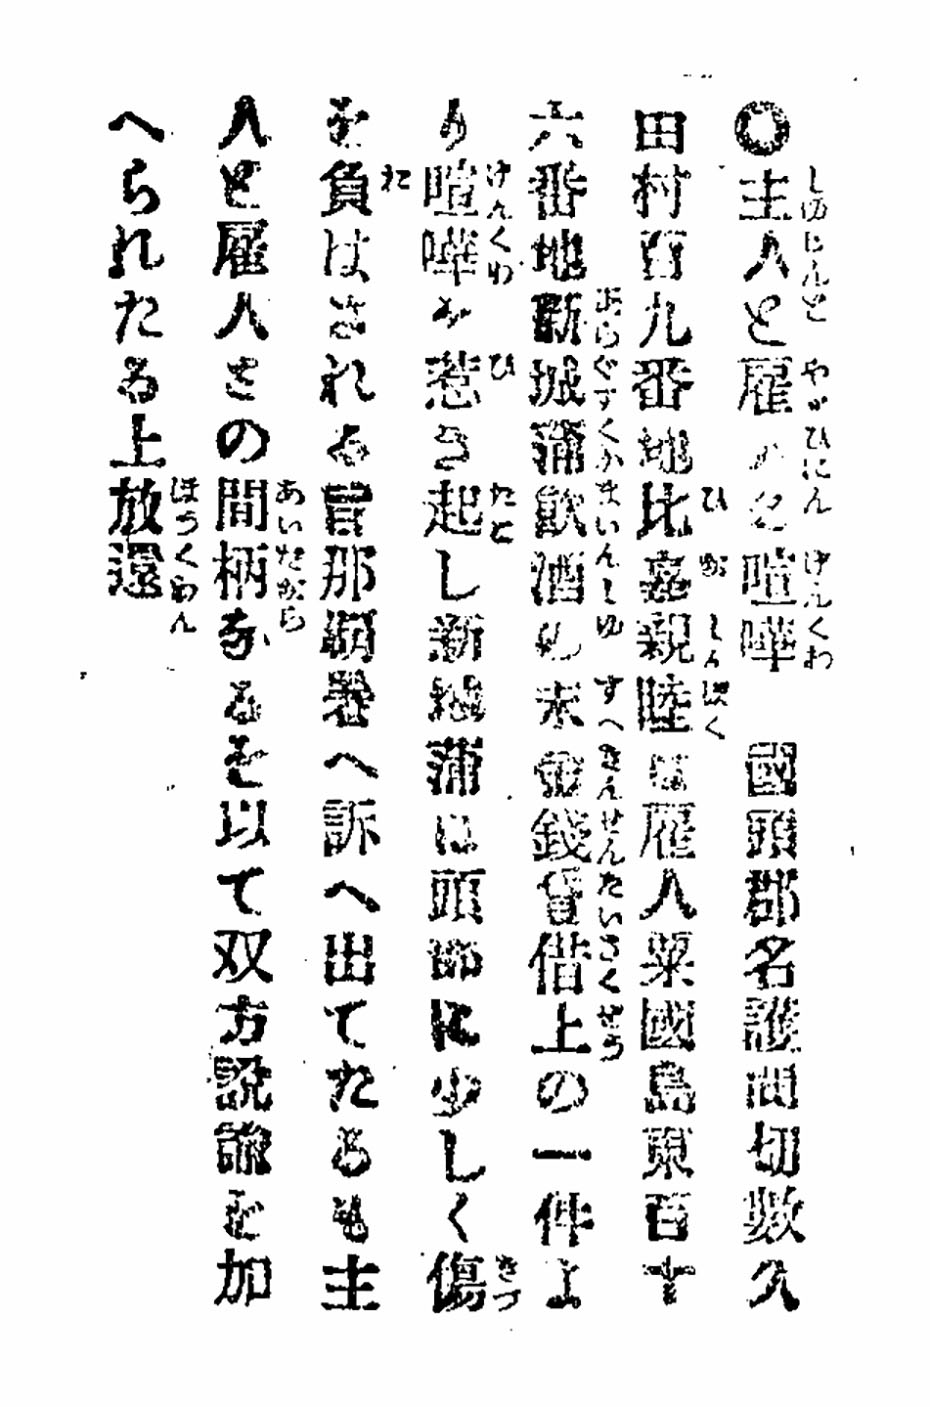 ◯主人と雇人と喧嘩　國頭郡名護間切數久
田村百九番地比嘉親睦は雇人粟國島東百十
六番地新城蒲飲酒の末金錢貸借上の一件よ
り喧嘩を惹き起し新城蒲は頭部に少しく傷
を負はされる旨那覇署へ訴へ出てたるも主
人と雇人との間柄なるを以て双方説諭を加
へられたる上放還